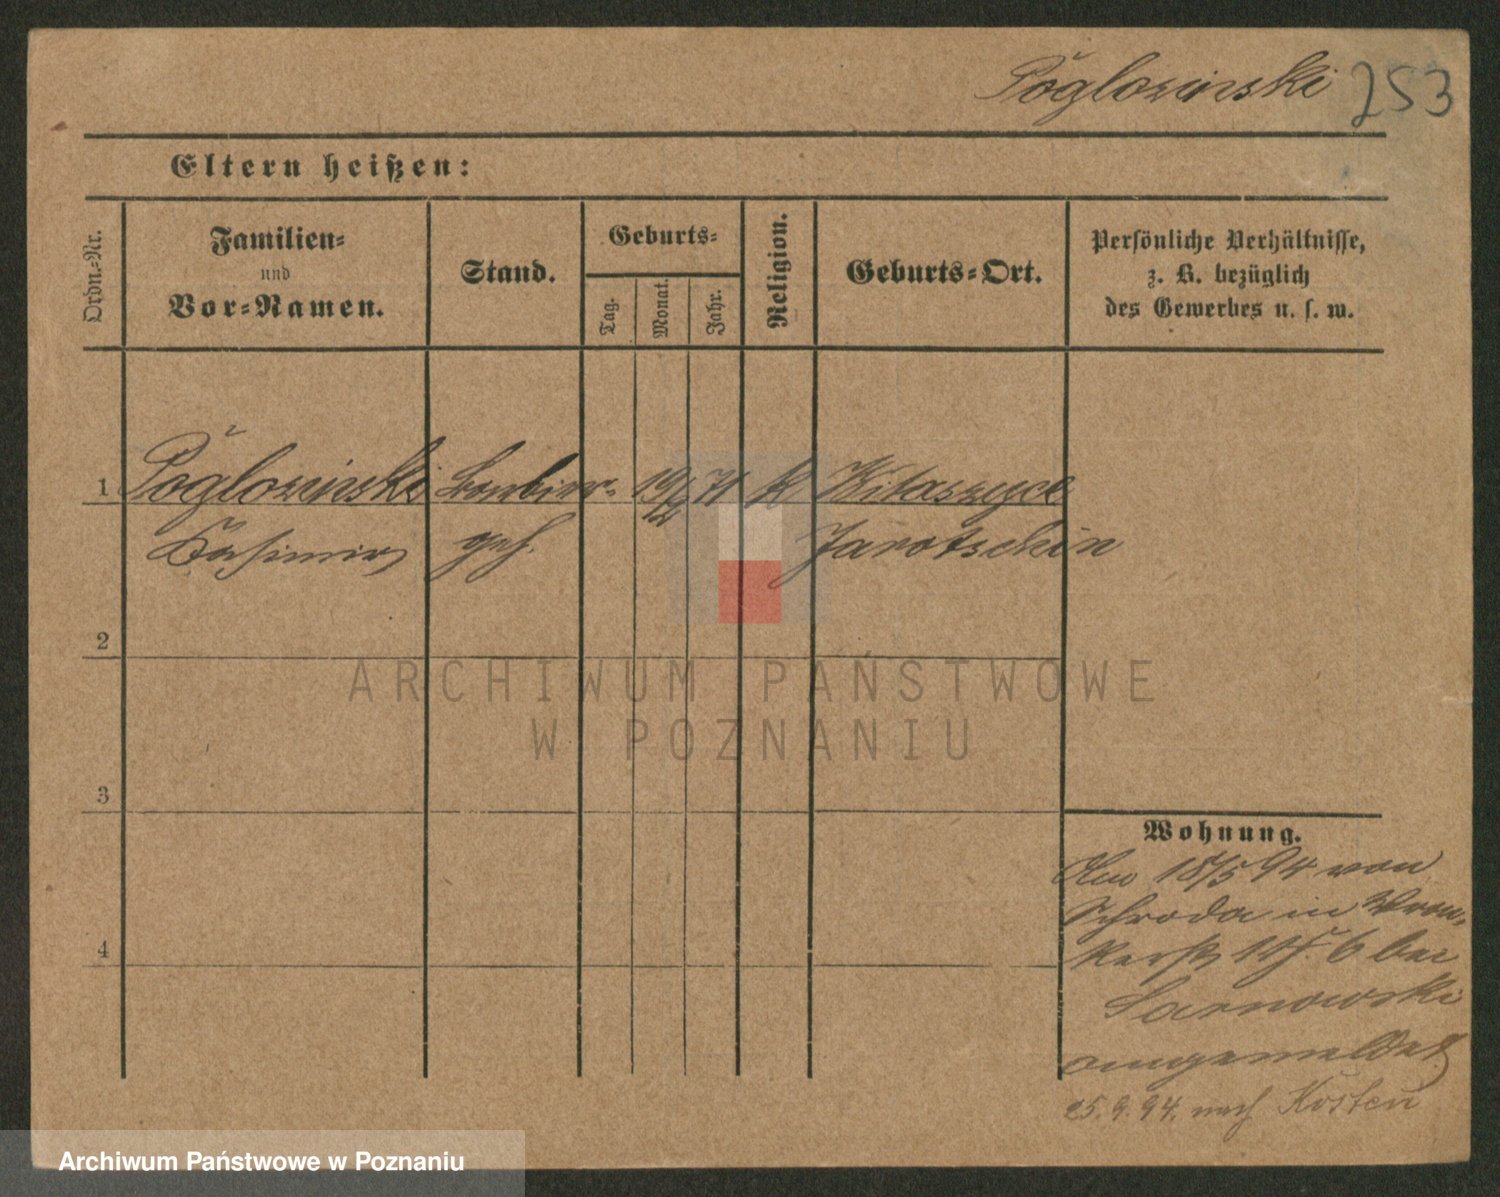 Pŏglozinski 253
Eltern heißen:
Ordn.-Nr.
Familien-
und
Vor-Namen.
Stand.
Geburts-
Tag.
Monat.
Jahr.
Religion.
Geburts-Ort.
Persönliche Verhältnisse,
z. B. bezüglich
des Gewerbes u. s. w.
1 Pŏglozinski Barbier- 19/2 71 k Witaszyce
Kasimir geh. Jarotschin
2
ARCHIWUM PAŃSTWOWE
W POZNANIU
3
Wohnung.
Am 18/5 94 von
Schroda in Wron-
kerstr. 6 bei
Sarnowski
angemeldet
25.9.94. nach Kosten
4
Archiwum Państwowe w Poznaniu